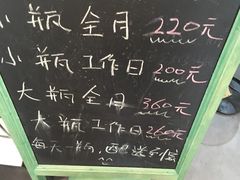 小瓶全月 220元
小瓶工作日 200元
大瓶全月 360元
大瓶工作日 260元
每天一瓶,配送到